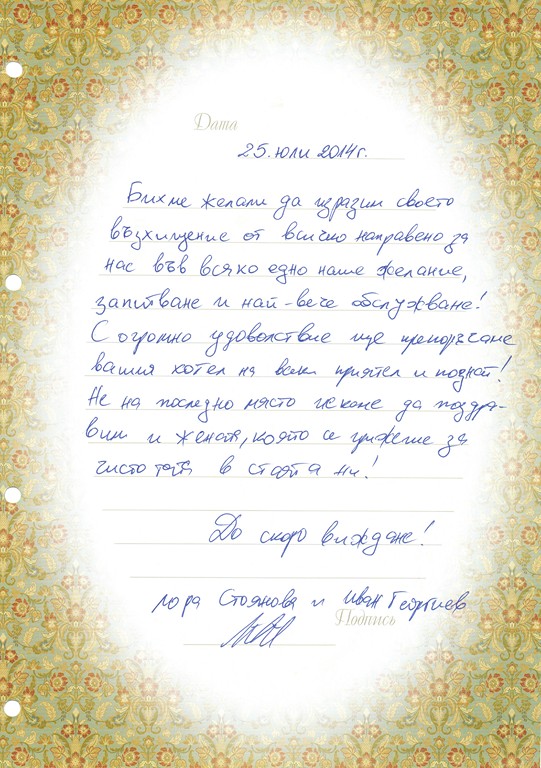 Дата
25. юли 2014г.
Бихме желали да изразим своето
възхищение от всичко направено за
нас във всяко едно наше желание,
запитване и най-вече обслужване!
С огромно удоволствие ще препоръчаме
вашия хотел на всеки приятел и познат!
Не на последно място искаме да поздра-
вим и жената, която се грижеше за
чистотата в стаята ни!
До скоро виждане!
Лора Стоянова и Иван Георгиев
Подпись